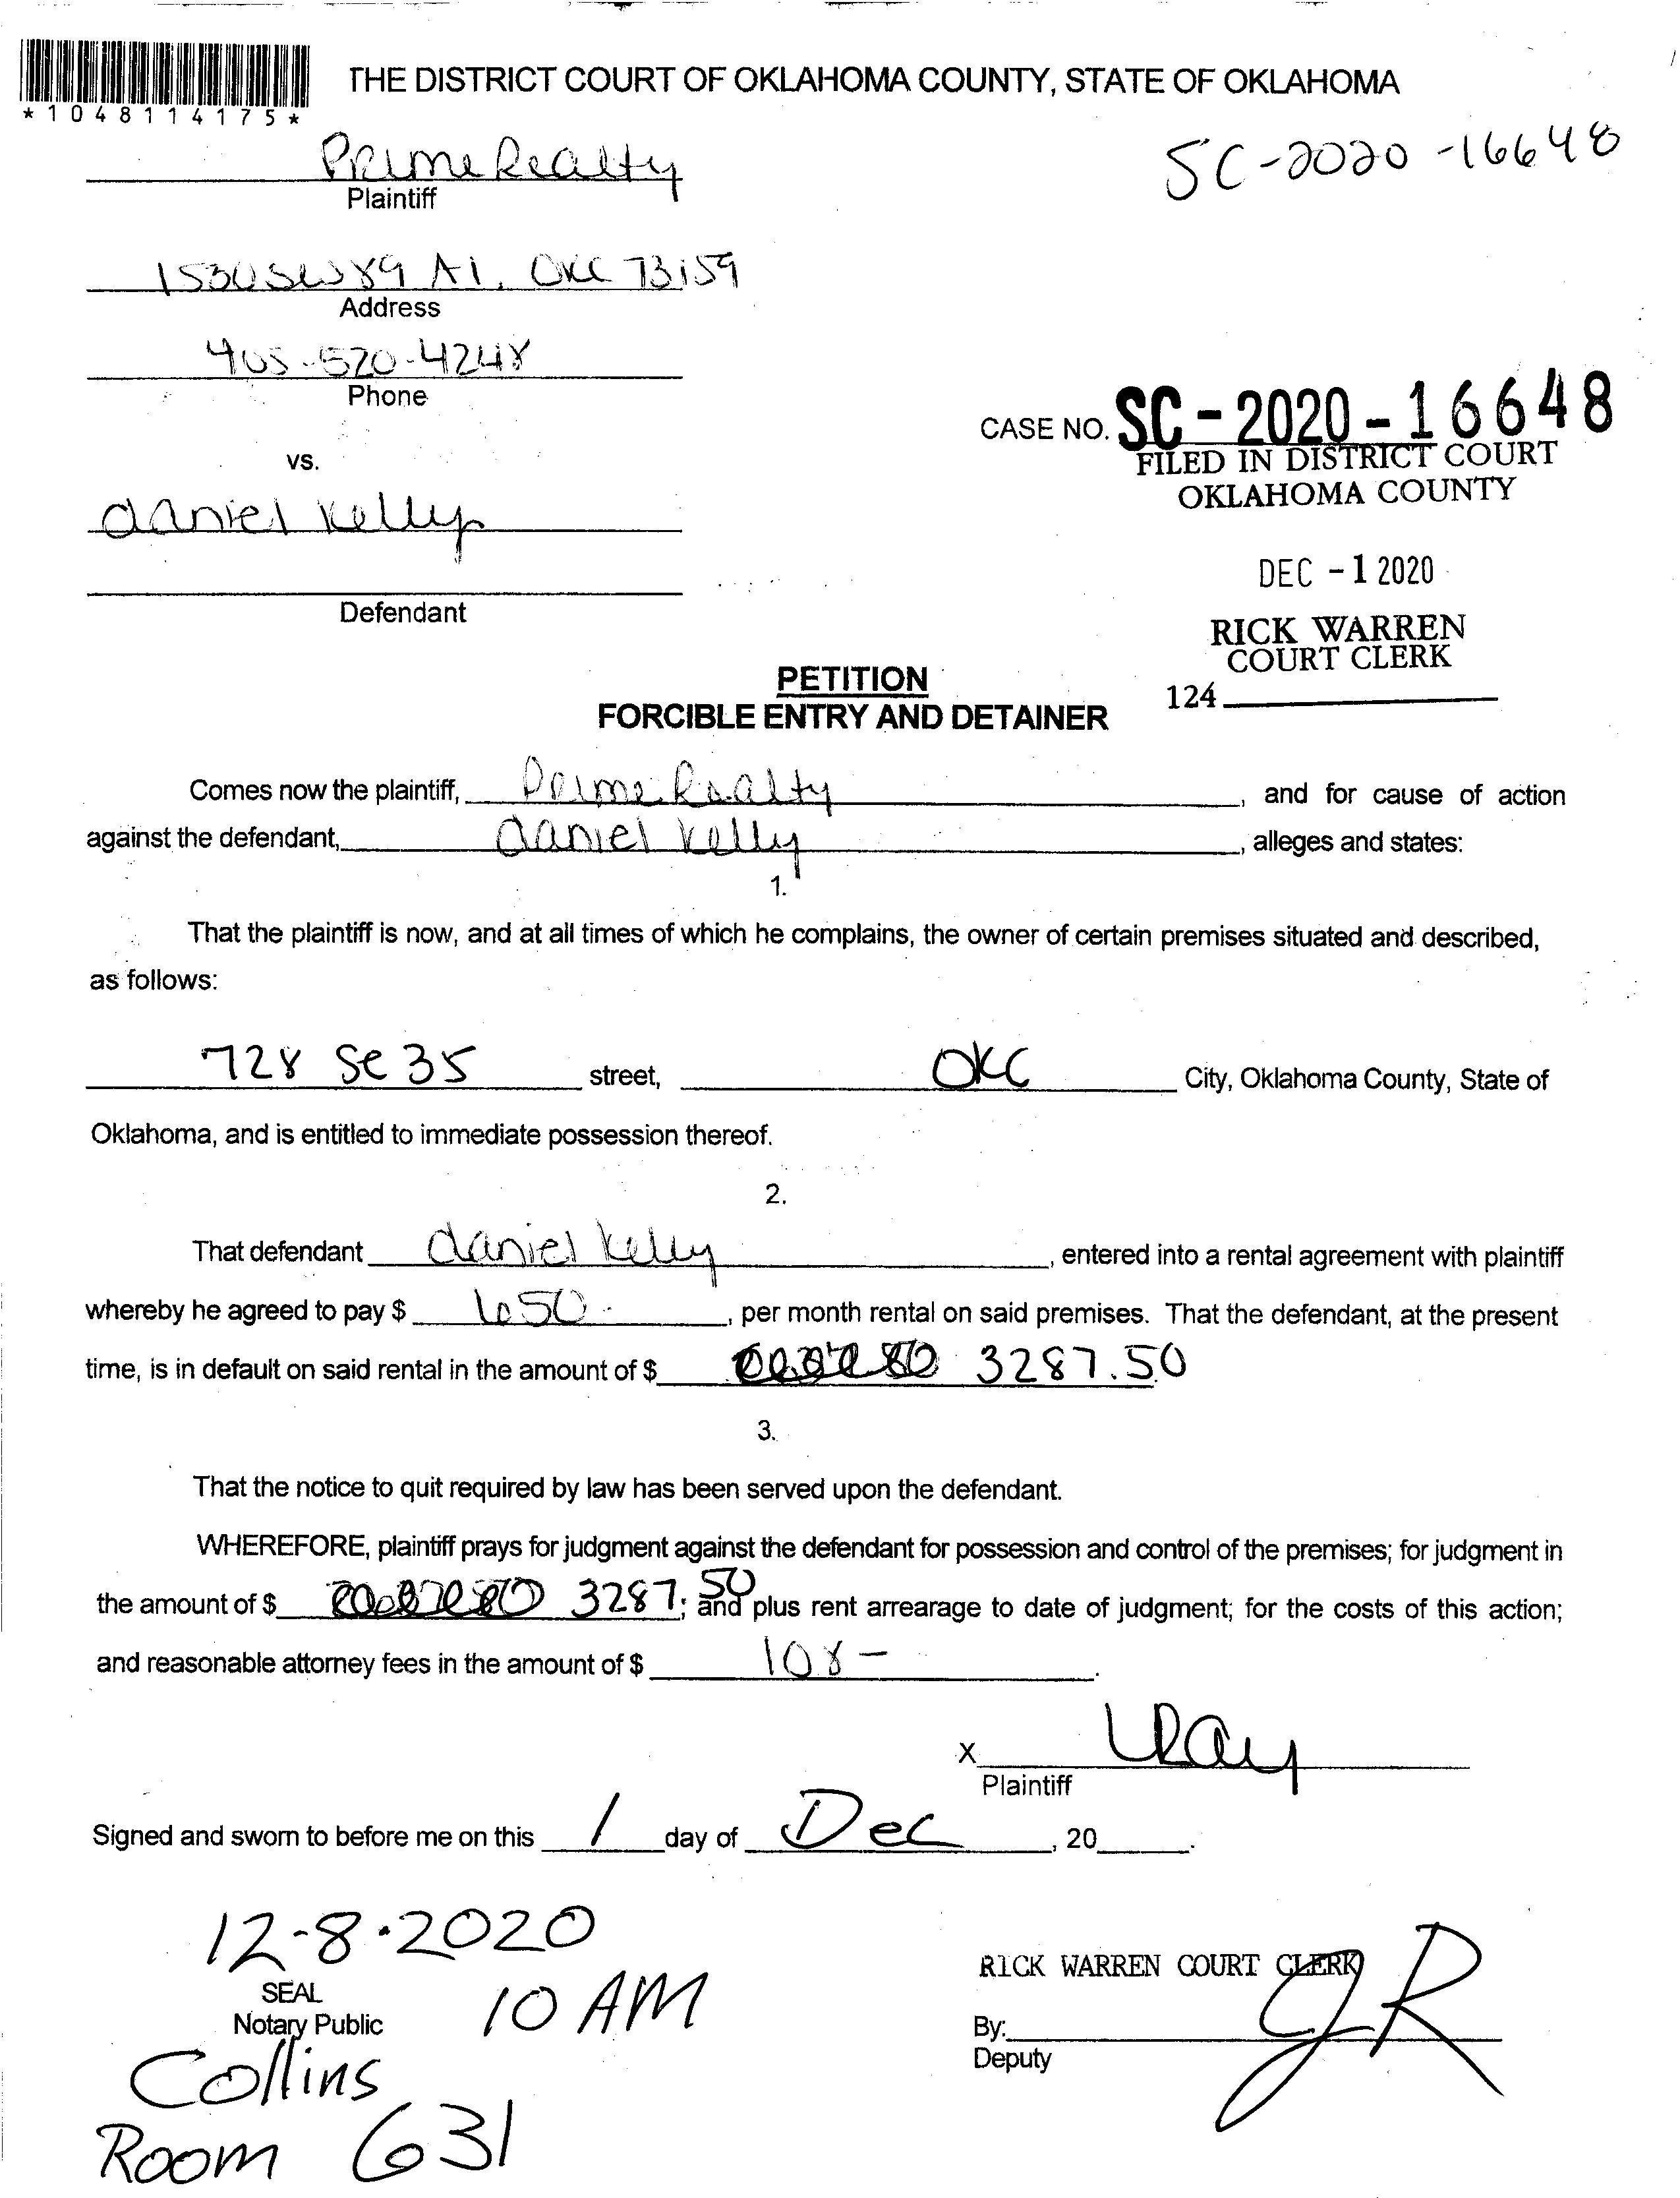 THE DISTRICT COURT OF OKLAHOMA COUNTY, STATE OF OKLAHOMA
*1048114175*
Prime Realty
SC-2020-16648
Plaintiff
1530 SW 89 A1, OKC 73159
Address
405-520-4248
Phone
CASE NO. SC-2020-16648
FILED IN DISTRICT COURT
OKLAHOMA COUNTY
vs.
daniel kelly
DEC -1 2020
Defendant
RICK WARREN
COURT CLERK
124
PETITION
FORCIBLE ENTRY AND DETAINER
Comes now the plaintiff, Prime Realty, and for cause of action
against the defendant, daniel kelly, alleges and states:
1.
That the plaintiff is now, and at all times of which he complains, the owner of certain premises situated and described,
as follows:
728 Se 35 street, OKC City, Oklahoma County, State of
Oklahoma, and is entitled to immediate possession thereof.
2.
That defendant daniel kelly, entered into a rental agreement with plaintiff
whereby he agreed to pay $ 650-, per month rental on said premises. That the defendant, at the present
time, is in default on said rental in the amount of $ 3287.50
3.
That the notice to quit required by law has been served upon the defendant.
WHEREFORE, plaintiff prays for judgment against the defendant for possession and control of the premises; for judgment in
the amount of $ 3287.50; and plus rent arrearage to date of judgment; for the costs of this action;
and reasonable attorney fees in the amount of $ 108-.
X
Plaintiff
Signed and sworn to before me on this 1 day of Dec, 20 .
12-8-2020
SEAL
Notary Public
10 AM
Collins
Room 631
RICK WARREN COURT CLERK
By:
Deputy
JR